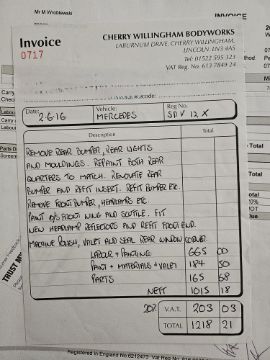 Mr M
INVOICE
Invoice
0717
CHERRY WILLINGHAM BODYWORKS
LABURNUM DRIVE, CHERRY WILLINGHAM,
LINCOLN LN3 4AS
Tel: 01522 595 123
VAT Reg. No. 613 7849 24
Date:
2-6-16
Vehicle:
MERCEDES
Reg No.
Description
Total
REMOVE REAR BUMPER, REAR LIGHTS
AND MOULDINGS. REPAINT BOTH REAR
QUARTERS TO MATCH. RENOVATE REAR
BUMPER AND REFIT NUGGET. REFIT BUMPER ETC.
REMOVE FRONT BUMPER, HEADLAMPS ETC
PAINT O/S FRONT WING AND SCUTTLE. FIT
NEW HEADLAMP REFLECTORS AND REFIT FRONT END.
MACHINE POLISH, VALET AND SEAL REAR WINDOW CORNER
LABOUR + PAINTING 665 00
PAINT + MATERIALS + VALET 184 50
PARTS 165 68
NETT 1015 18
20% V.A.T. 203 03
TOTAL 1218 21